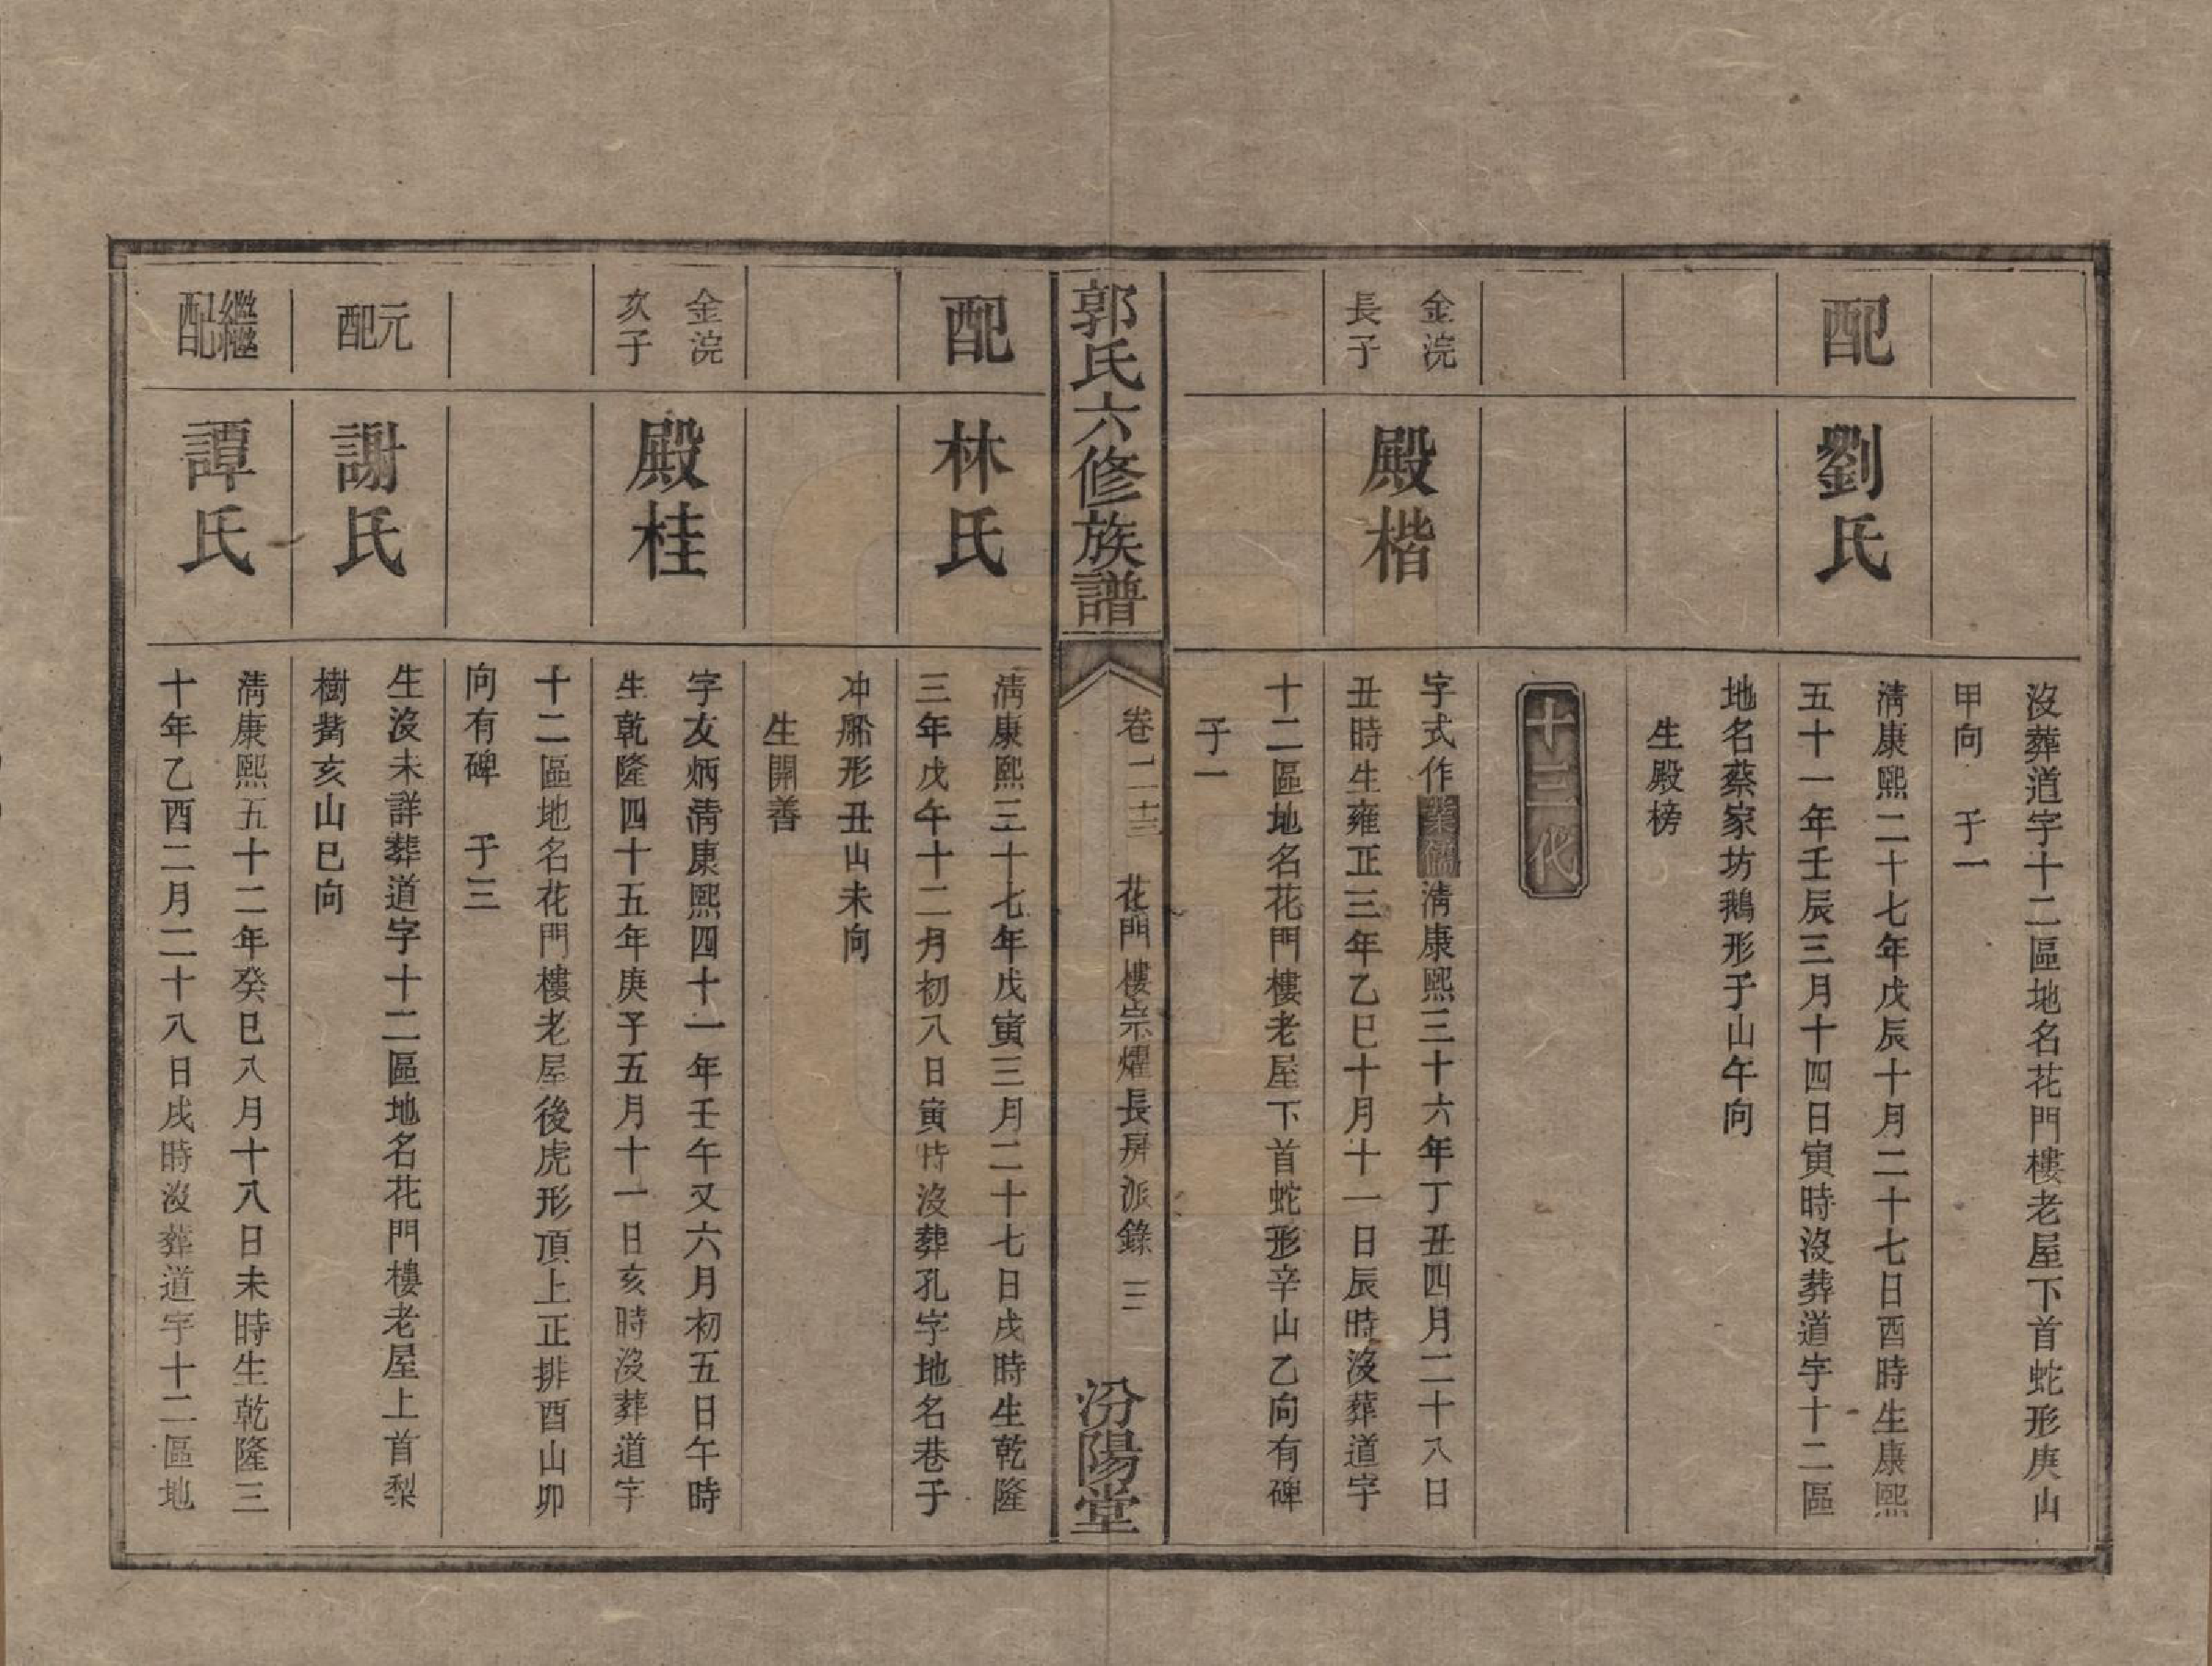 沒葬道字十二區地名花門樓老屋下首蛇形庚山
甲向　子一
配
劉氏
淸康熙二十七年戊辰十月二十七日酉時生康熙
五十一年壬辰三月十四日寅時沒葬道字十二區
地名蔡家坊鵝形子山午向
生殿榜
十三代
金浣
長子
殿楷
字式作業儒淸康熙三十六年丁丑四月二十八日
丑時生雍正三年乙巳十月十一日辰時沒葬道字
十二區地名花門樓老屋下首蛇形辛山乙向有碑
子一
郭氏六修族譜
卷二十三　花門樓宗燿長房派錄　三
汾陽堂
配
林氏
淸康熙三十七年戊寅三月二十七日戌時生乾隆
三年戊午十二月初八日寅時沒葬孔字地名巷子
冲船形丑山未向
生開善
金浣
次子
殿桂
字友炳淸康熙四十一年壬午又六月初五日午時
生乾隆四十五年庚子五月十一日亥時沒葬道字
十二區地名花門樓老屋後虎形頂上正排酉山卯
向有碑　子三
元配
謝氏
生沒未詳葬道字十二區地名花門樓老屋上首梨
樹嘴亥山巳向
繼繼配
譚氏
淸康熙五十二年癸巳八月十八日未時生乾隆三
十年乙酉二月二十八日戌時沒葬道字十二區地